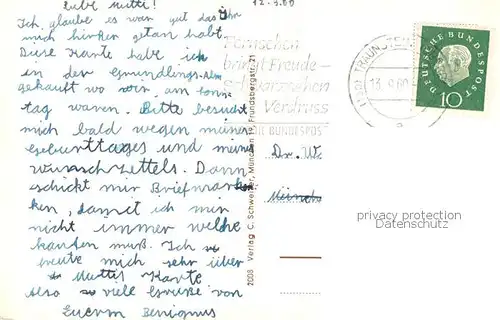 Liebe Mutti!
12.9.60
Ich glaube es war gut das Ihr
mich hinter getan habt.
Diese Karte habe ich
in der Gmundlings-Alm
gekauft wo wir am Sonn-
tag waren. Bitte besucht
mich bald wegen meines
Geburttages und meines
Wunschzettels. Dann
schickt mir Briefmarken
ken, damit ich mir
nicht immer welche
kaufen muß. Ich
freute mich sehr über
Muttis Karte
Also viele Grüße von
Euerm Benignus
Fernsehen
bringt Freude -
Verdruss
BUNDESPOST
TRAUNSTEIN
13.9.60
DEUTSCHE BUNDESPOST
10
Dr. W.
2008 Verlag C. Schweiger, München 19, Frundsbergstr. 21
privacy protection
Datenschutz